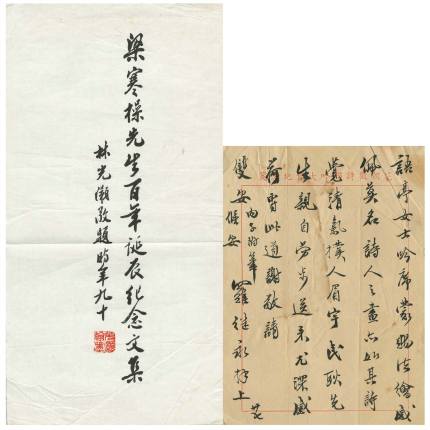 梁寒操先生百年誕辰紀念文集
林光灝敬題時年九十
語亭女士吟席蒙賜法繪感
佩莫名詩人之畫亦如其詩
覺清氣撲人眉宇民耿先
生親自勞步送來尤深感
荷耑此道謝敬請
雙安
內子附筆
羅 永拜上